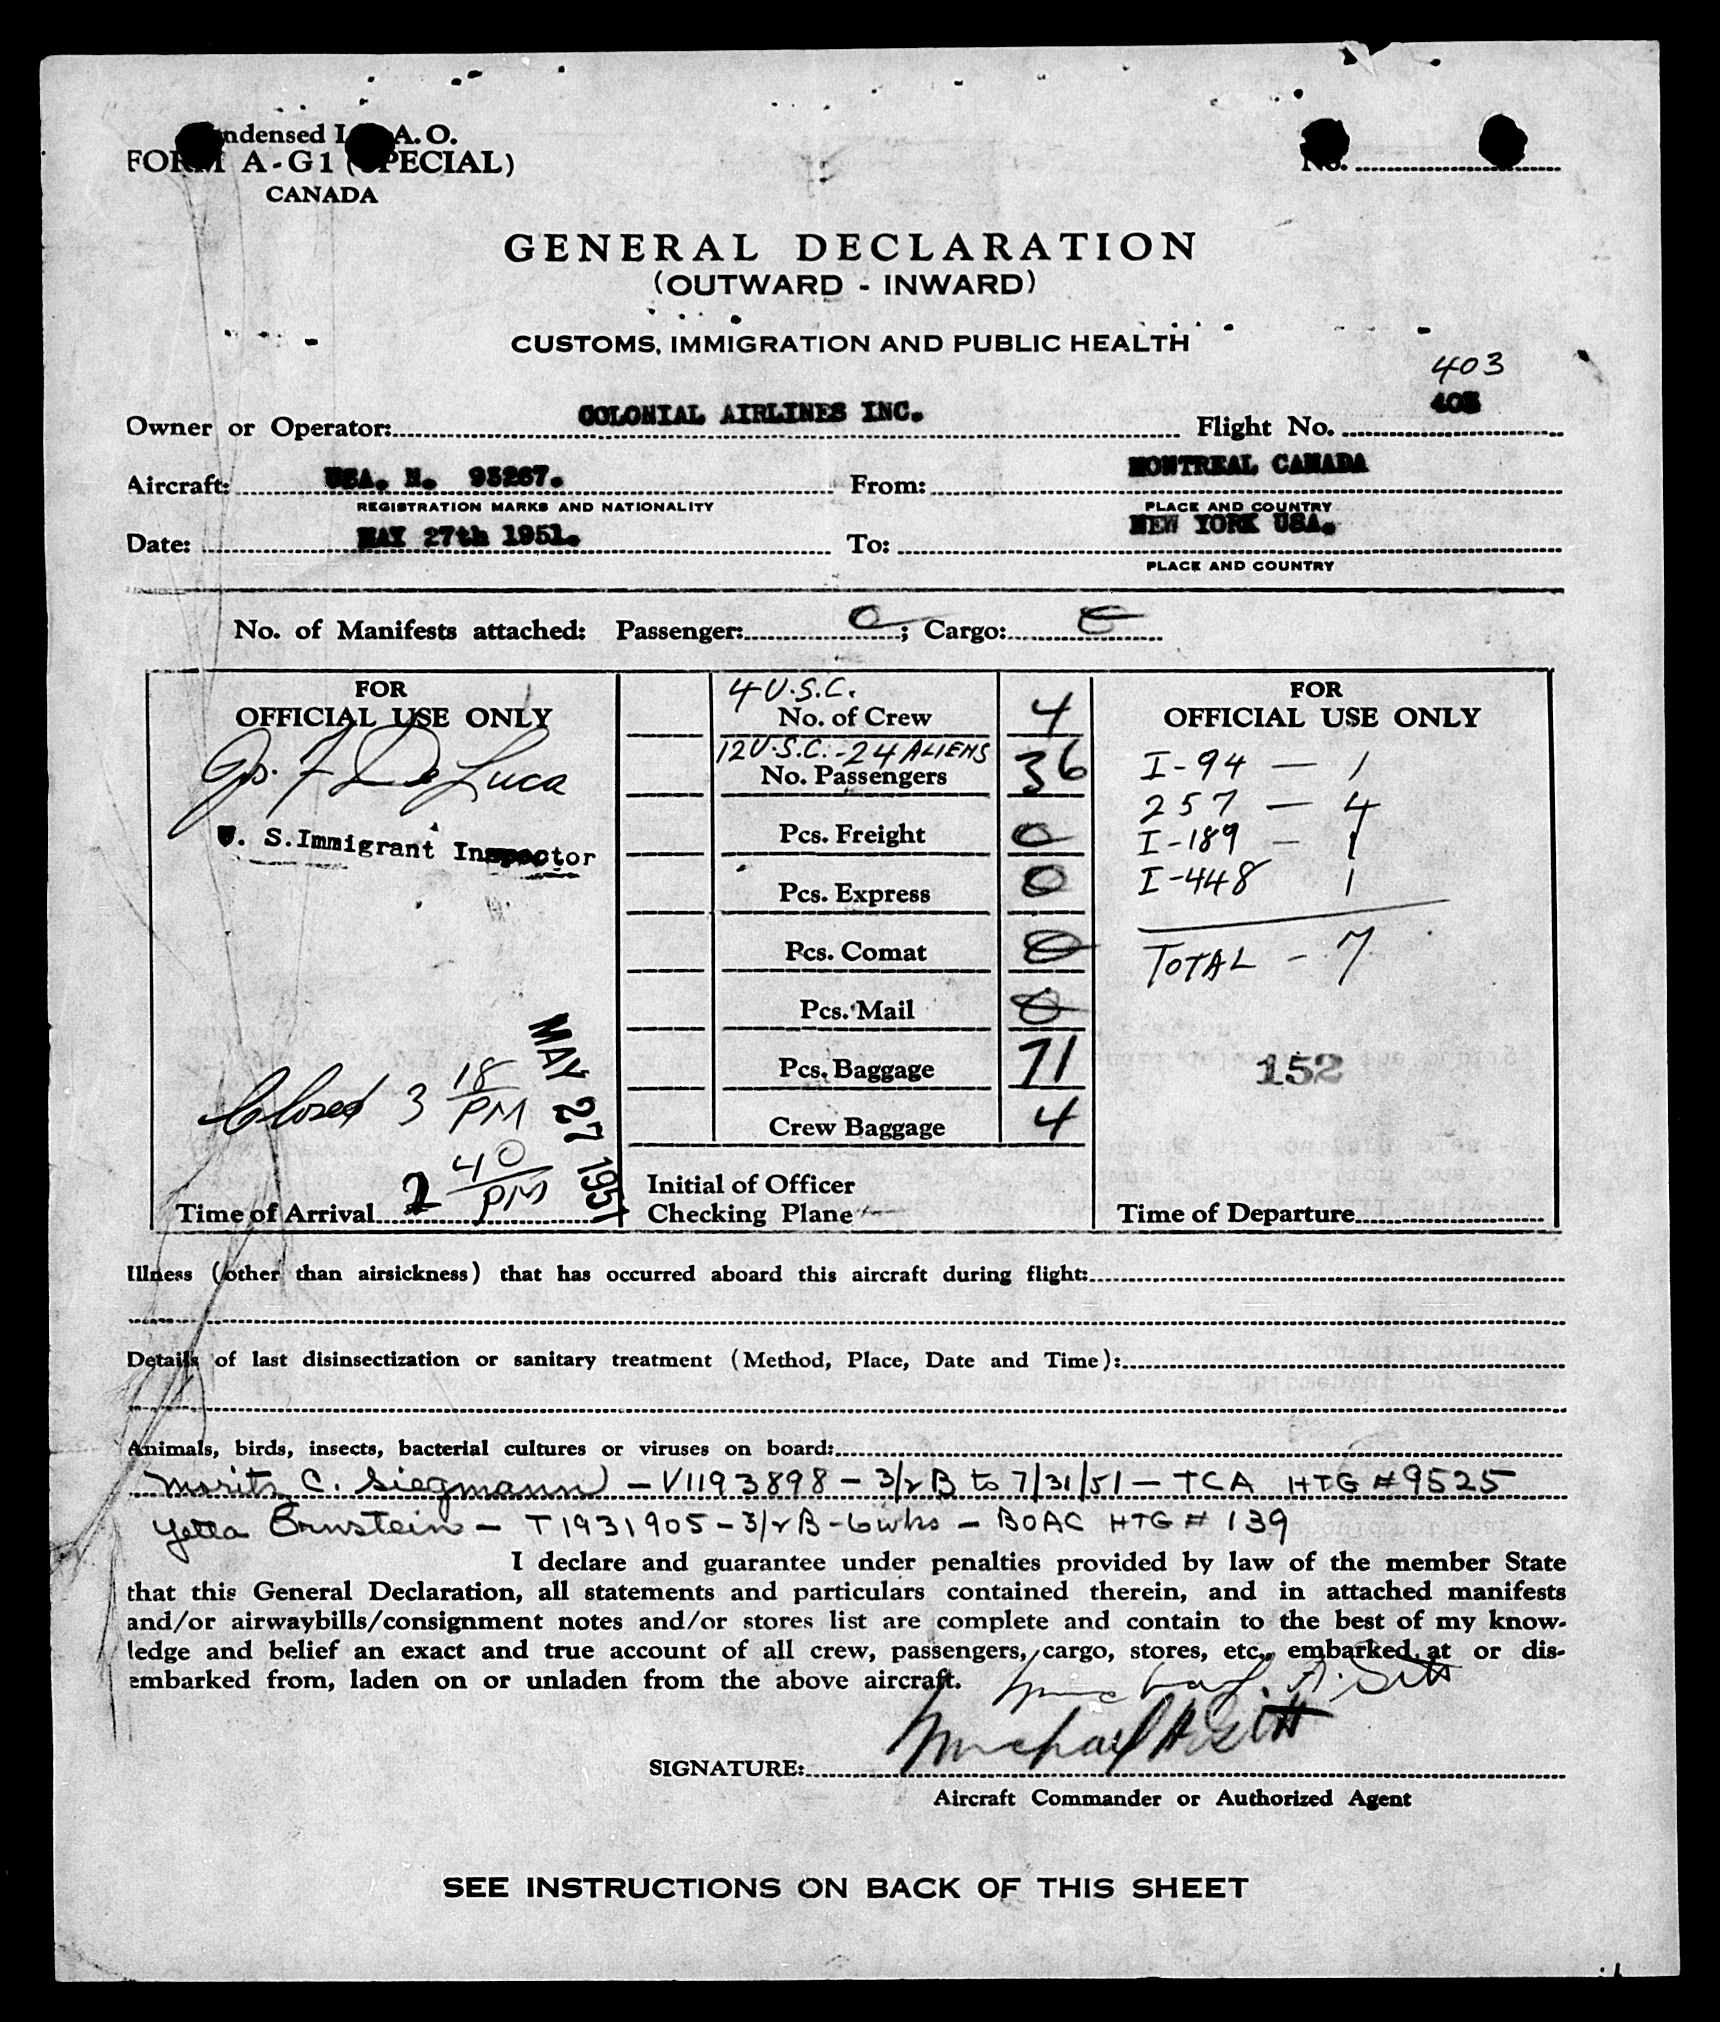 Condensed I.C.A.O.
FORM A-G1 (SPECIAL)
CANADA
No.
GENERAL DECLARATION
(OUTWARD - INWARD)
CUSTOMS, IMMIGRATION AND PUBLIC HEALTH
403
Owner or Operator: COLONIAL AIRLINES INC. Flight No. 403
Aircraft: USA. N. 93267. From: MONTREAL CANADA
REGISTRATION MARKS AND NATIONALITY PLACE AND COUNTRY
Date: MAY 27th 1951. To: NEW YORK USA.
PLACE AND COUNTRY
No. of Manifests attached: Passenger: 0; Cargo: 0
FOR
OFFICIAL USE ONLY
Jos. F De Luca
U. S. Immigrant Inspector
Closed 3 18 PM
MAY 27 1951
Time of Arrival 2 40 PM
4 U.S.C.
No. of Crew 4
12 U.S.C. - 24 ALIENS
No. Passengers 36
Pcs. Freight 0
Pcs. Express 0
Pcs. Comat 0
Pcs. Mail 0
Pcs. Baggage 71
Crew Baggage 4
Initial of Officer
Checking Plane
FOR
OFFICIAL USE ONLY
I-94 — 1
257 — 4
I-189 — 1
I-448 1
TOTAL - 7
152
Time of Departure
Illness (other than airsickness) that has occurred aboard this aircraft during flight:
Details of last disinsectization or sanitary treatment (Method, Place, Date and Time):
Animals, birds, insects, bacterial cultures or viruses on board:
Moritz C. Siegmann — V1193898 — 3/2 B to 7/31/51 — TCA HTG # 9525
Yetta Ernstein — T1931905 — 3/2 B - 6 wks — BOAC HTG # 139
I declare and guarantee under penalties provided by law of the member State
that this General Declaration, all statements and particulars contained therein, and in attached manifests
and/or airwaybills/consignment notes and/or stores list are complete and contain to the best of my know-
ledge and belief an exact and true account of all crew, passengers, cargo, stores, etc., embarked at or dis-
embarked from, laden on or unladen from the above aircraft.
Michael A. Sitt
SIGNATURE: Michael A Sitt
Aircraft Commander or Authorized Agent
SEE INSTRUCTIONS ON BACK OF THIS SHEET